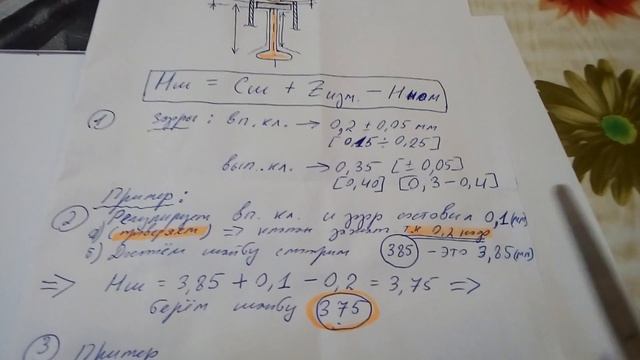 Hш = Cш + Zизм. – Hном
① Зазоры: вп. кл. → 0,2 ± 0,05 мм
[0,15 ÷ 0,25]
вып. кл. → 0,35 [± 0,05]
[0,40] [0,3 – 0,4]
Пример:
② Регулируем вп. кл. и зазор составил 0,1 (мм)
а) (проверяем) => клапан зажат т.к 0,2 надо
б) Достаём шайбу смотрим 385 – это 3,85 (мм)
=> Hш = 3,85 + 0,1 – 0,2 = 3,75 =>
берём шайбу 375
③ Пример